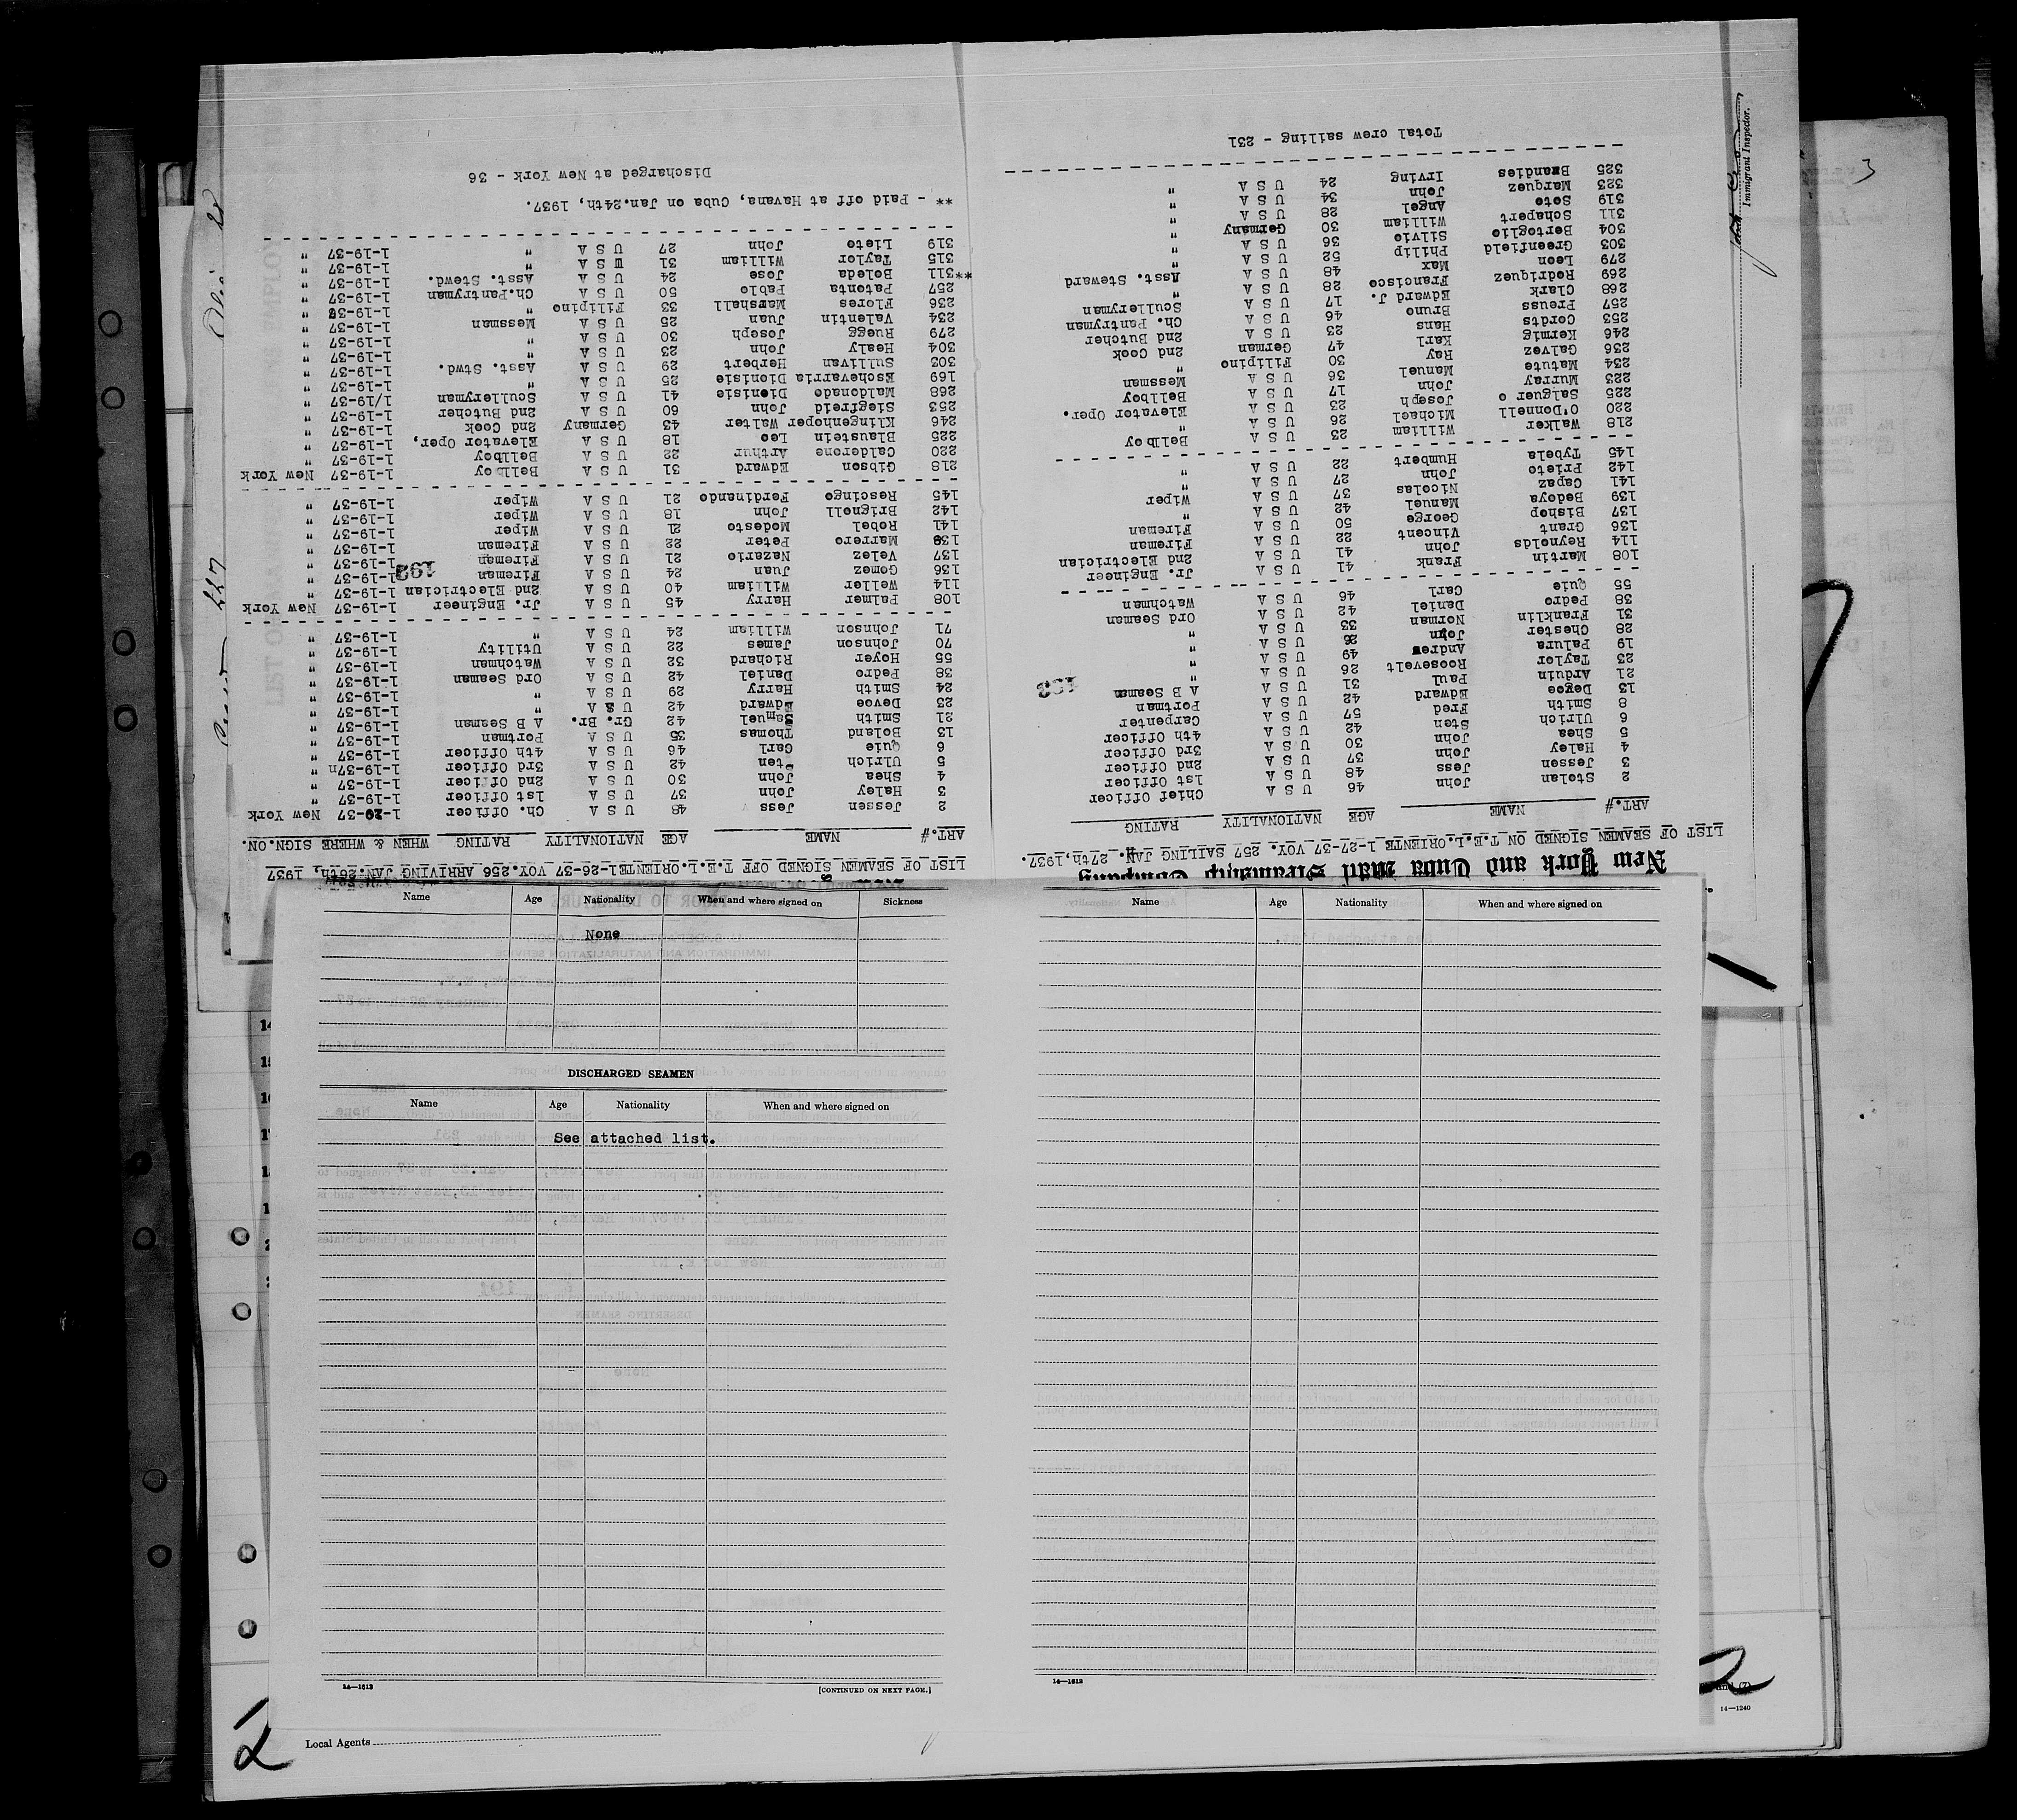 New York and Cuba Mail Steamship Company
LIST OF SEAMEN SIGNED ON T.E.L.ORIENTE 1-27-37 VOY. 257 SAILING JAN. 27th, 1937.
ART.# NAME AGE NATIONALITY RATING
2 Stolan John 46 U S A Chief Officer
3 Jessen Jess 48 U S A 1st Officer
4 Haley John 37 U S A 2nd Officer
5 Shea John 30 U S A 3rd Officer
6 Ulrich Sten 42 U S A 4th Officer
8 Smith Fred 57 U S A Carpenter
13 Degoe Edward 42 U S A Portman
21 Arduin Paul 31 U S A A B Seaman
23 Taylor Roosevelt 26 U S A "
19 Palura Andrew 49 U S A "
28 Chester John 26 U S A "
31 Franklin Norman 33 U S A "
38 Pedro Daniel 42 U S A Ord Seaman
55 Quie Carl 46 U S A Watchman
108 Martin Frank 41 U S A Jr. Engineer
114 Reynolds John 41 U S A 2nd Electrician
136 Grant Vincent 22 U S A Fireman
137 Bishop George 50 U S A Fireman
139 Bedoya Manuel 42 U S A "
141 Capaz Nicolas 37 U S A Wiper
142 Prieto John 27 U S A "
145 Tybela Humbert 22 U S A "
218 Walker William 23 U S A Bellboy
220 O'Donnell Michael 26 U S A "
225 Salguer o Joseph 23 U S A Elevator Oper.
223 Murray John 17 U S A Bellboy
234 Matute Manuel 36 U S A Messman
236 Galvez Ray 30 Filipino "
246 Kermig Karl 47 German 2nd Cook
253 Cordts Hans 23 U S A 2nd Butcher
257 Preuss Bruno 46 U S A Ch. Pantryman
268 Clark Edward J. 17 U S A Sculleryman
269 Rodriquez Francisco 28 U S A "
279 Leon Max 48 U S A Asst. Steward
303 Greenfield Philip 52 U S A "
304 Bertoglio Silvio 36 U S A "
311 Schapert William 30 Germany "
319 Soto Angel 28 U S A "
323 Marquez John 34 U S A "
325 Brandies Irving 24 U S A "
Total crew sailing - 231
LIST OF SEAMEN SIGNED OFF T.E.L.ORIENTE1-26-37 VOY.256 ARRIVING JAN.26th, 1937
ART.# NAME AGE NATIONALITY RATING WHEN & WHERE SIGN.ON.
2 Jessen Jess 48 U S A Ch. Officer 1-19-37 New York
3 Haley John 37 U S A 1st Officer 1-19-37 "
4 Shea John 30 U S A 2nd Officer 1-19-37 "
5 Ulrich Sten 42 U S A 3rd Officer 1-19-37 "
6 Quie Carl 46 U S A 4th Officer 1-19-37 "
13 Boland Thomas 35 U S A Portman 1-19-37 "
21 Smith Samuel 42 Gr. Br. A B Seaman 1-19-37 "
23 Devoe Edward 42 U S A " 1-19-37 "
24 Smith Harry 29 U S A " 1-19-37 "
38 Pedro Daniel 42 U S A Ord Seaman 1-19-37 "
55 Hoyer Richard 32 U S A Watchman 1-19-37 "
70 Johnson James 22 U S A Utility 1-19-37 "
71 Johnson William 24 U S A " 1-19-37 "
108 Palmer Harry 45 U S A Jr. Engineer 1-19-37 New York
114 Weller William 40 U S A 2nd Electrician 1-19-37 "
136 Gomez Juan 24 U S A Fireman 1-19-37 "
137 Velez Nazario 21 U S A Fireman 1-19-37 "
139 Marrero Peter 22 U S A Fireman 1-19-37 "
141 Robel Modesto 21 U S A Wiper 1-19-37 "
142 Brignell John 18 U S A Wiper 1-19-37 "
145 Roscingo Ferdinando 21 U S A Wiper 1-19-37 "
218 Gibson Edward 31 U S A Bellboy 1-19-37 New York
220 Calderone Arthur 22 U S A Bellboy 1-19-37 "
225 Blaustein Leo 18 U S A Elevator Oper, 1-19-37 "
246 Klingenhoper Walter 43 Germany 2nd Cook 1-19-37 "
253 Siegfreid John 60 U S A 2nd Butcher 1-19-37 "
268 Maldonado Dionisie 41 U S A Sculleryman 1/19-37 "
169 Eschevarria Dionisie 25 U S A " 1-19-37 "
303 Sullivan Herbert 29 U S A Asst. Stwd. 1-19-37 "
304 Healy John 23 U S A " 1-19-37 "
279 Ruegg Joseph 30 U S A " 1-19-37 "
234 Valentin Juan 25 U S A Messman 1-19-37 "
236 Flores Marshall 33 Filipino " 1-19-37 "
257 Patonta Pablo 50 U S A Ch.Pantryman 1-19-37 "
**311 Boleda Jose 24 U S A Asst. Stewd. 1-19-37 "
315 Taylor William 31 U S A " 1-19-37 "
319 Lieto John 27 U S A " 1-19-37 "
** - Paid off at Havana, Cuba on Jan.24th, 1937.
Discharged at New York - 36
192
Immigrant Inspector.
3
Name Age Nationality When and where signed on Sickness
None
DISCHARGED SEAMEN
Name Age Nationality When and where signed on
See attached list.
14—1612
[CONTINUED ON NEXT PAGE.]
Name Age Nationality When and where signed on
14—1612
Local Agents
2
14—1240